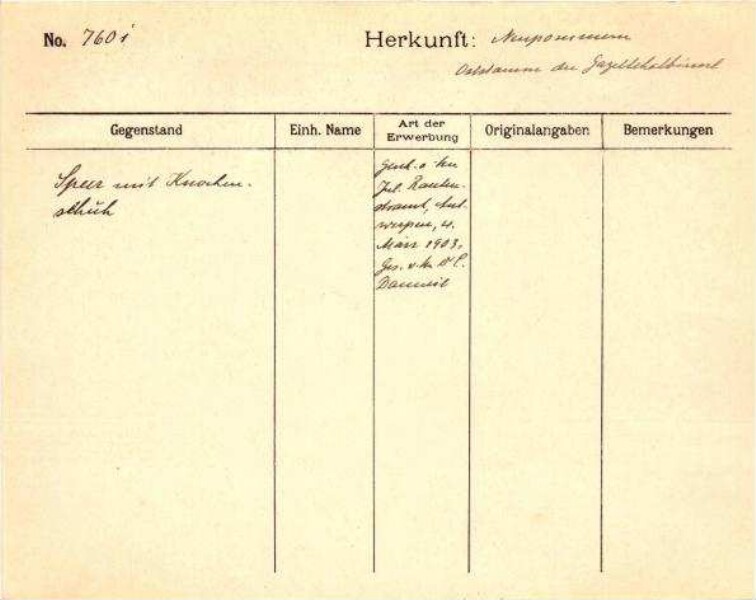 No. 7601 Herkunft: Neupommern
Oststamm der Gazellehalbinsel
Gegenstand Einh. Name Art der Erwerbung Originalangaben Bemerkungen
Speer mit Knochen-
schuh
Gesch. v. Hn
Jul. Rauten-
strauch, Ant-
werpen, 4.
März 1903.
Ges. v. Hn Dr C.